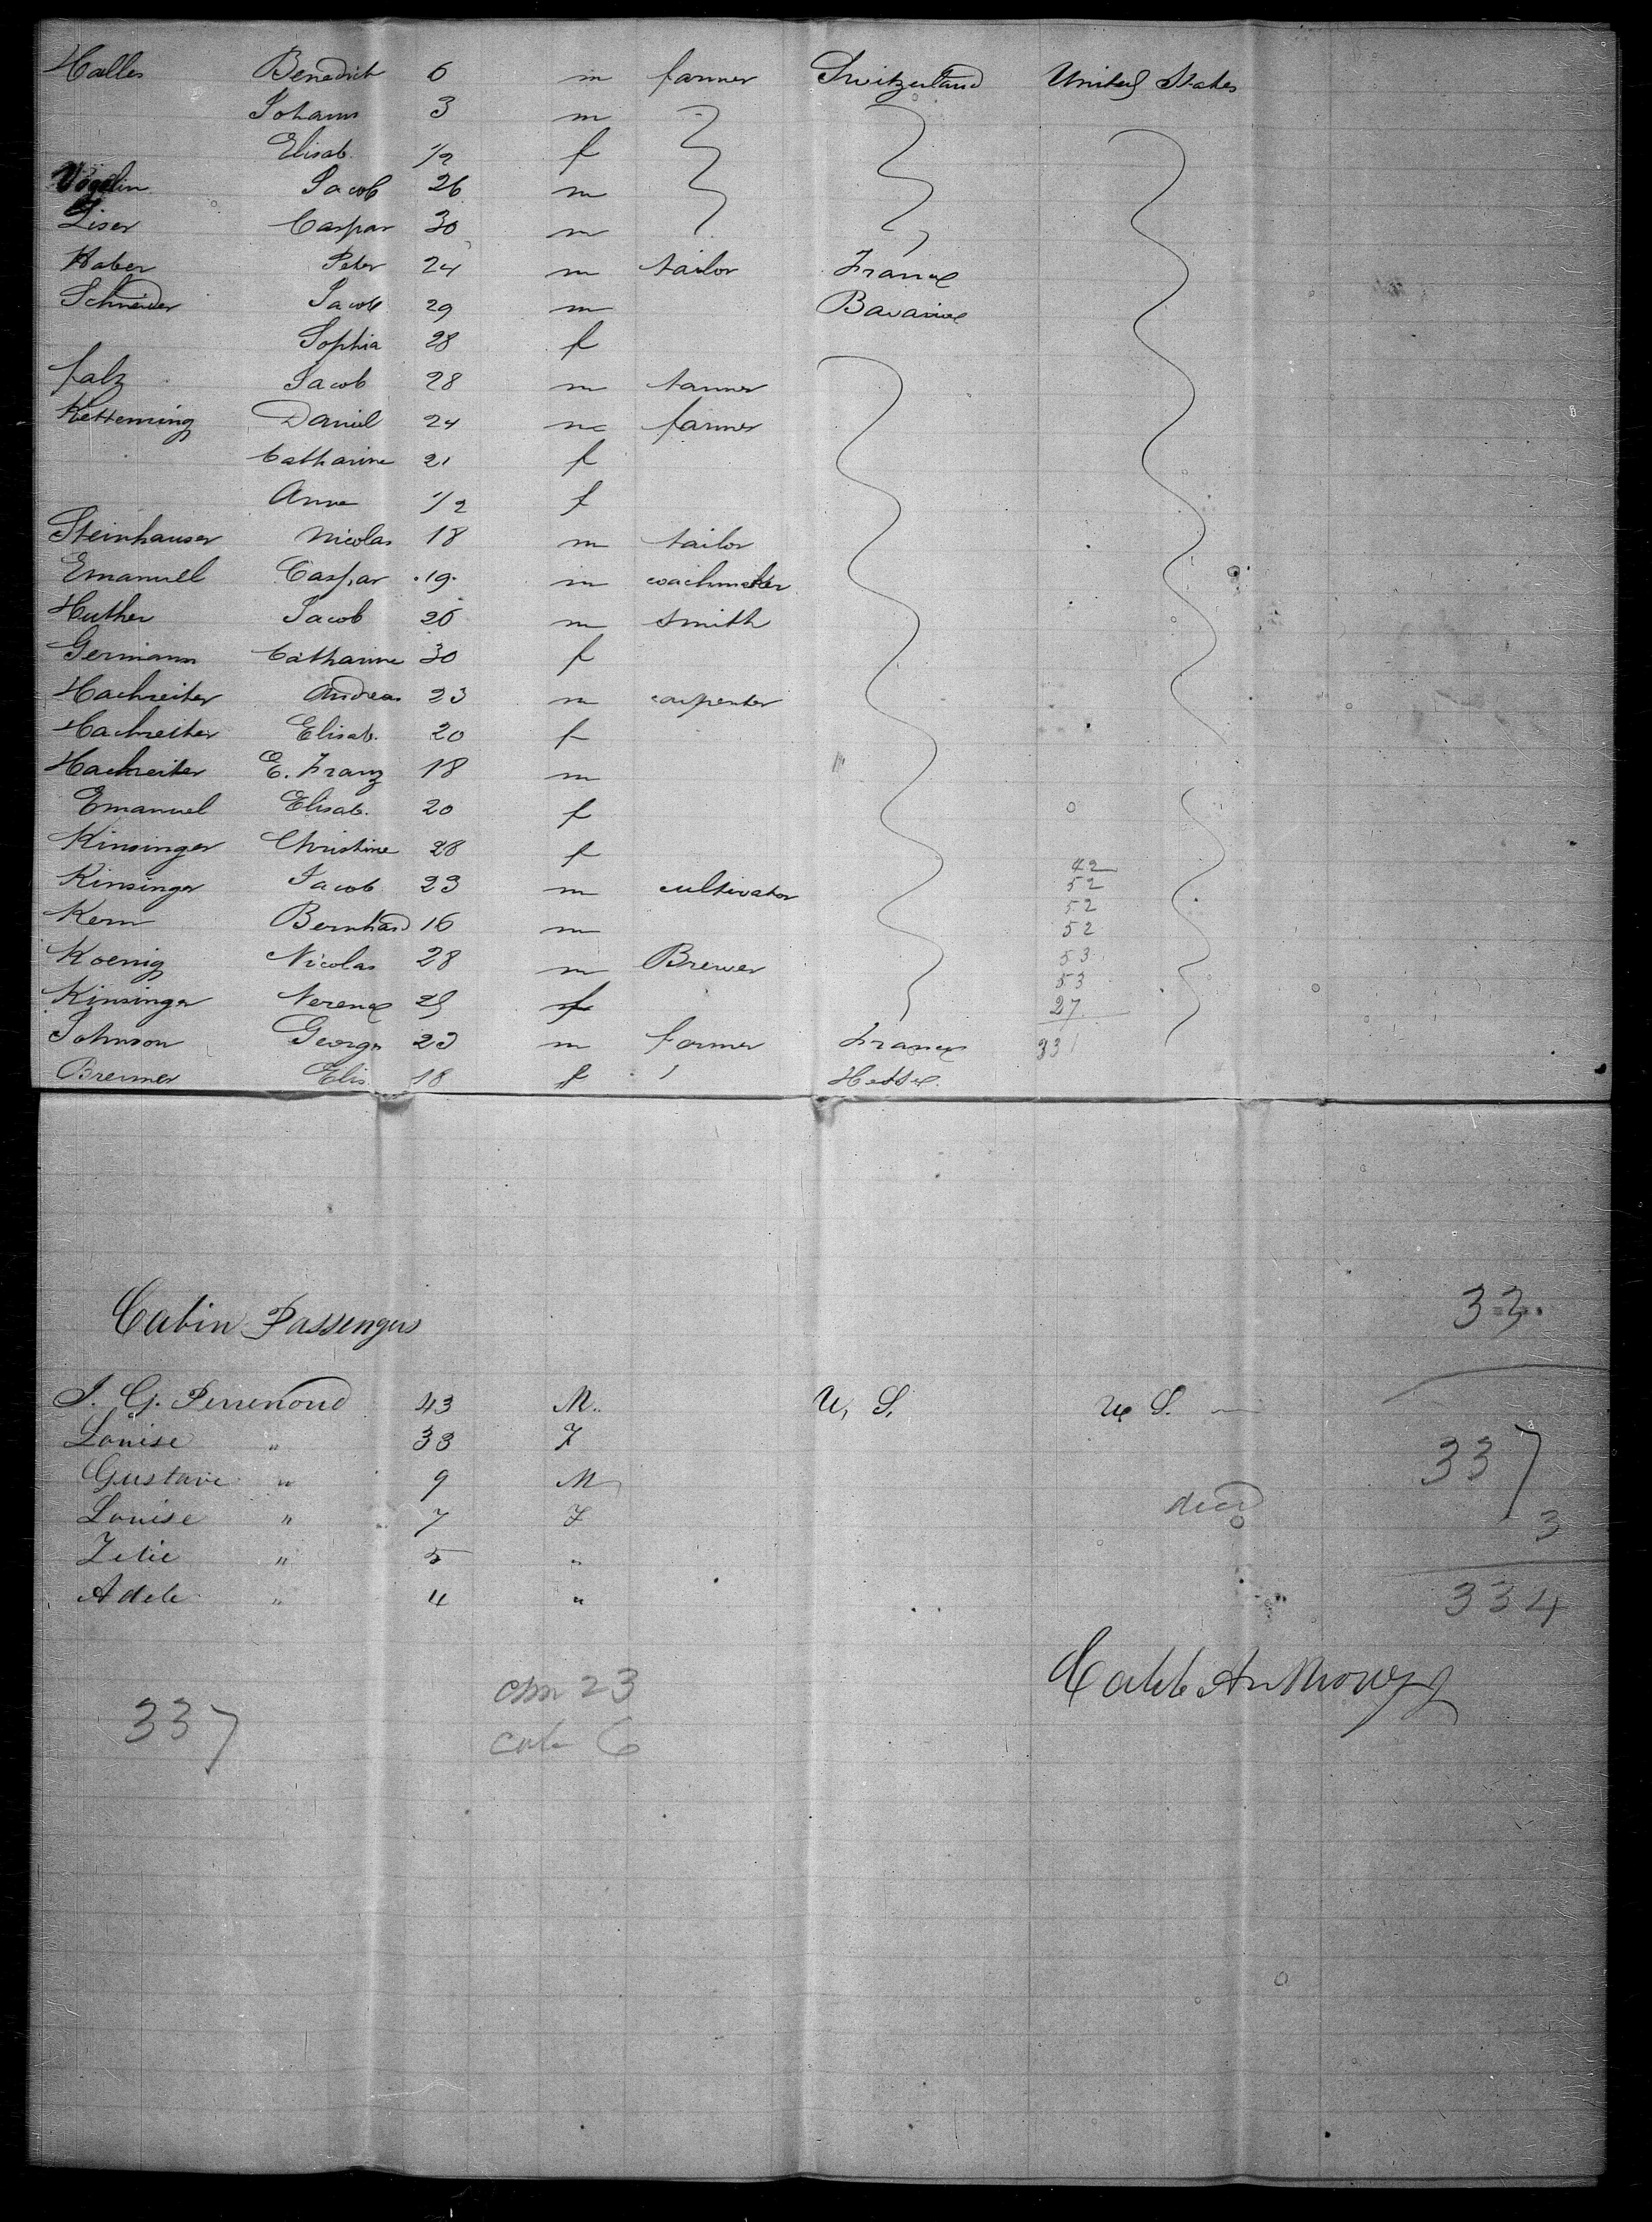 Haller Benedict 6 m farmer Switzerland United States
Johann 3 m
Elisab. 1/2 f
Vögelin Jacob 26 m
Liser Caspar 30 m
Haber Peter 24 m tailor France
Schneider Jacob 29 m Bavaria
Sophia 28 f
falz Jacob 28 m tanner
Kettenring Daniel 24 m farmer
Catharine 21 f
Anna 1/2 f
Steinhauser Nicolas 18 m tailor
Emanuel Caspar 19 m coachmaker
Huther Jacob 26 m smith
Germann Catharine 30 f
Hachreiter Andreas 23 m carpenter
Hachreiter Elisab. 20 f
Hachreiter E. Franz 18 m
Emanuel Elisab. 20 f
Kinsinger Christine 28 f
42
Kinsinger Jacob 23 m cultivator 52
52
Kern Bernhard 16 m 52
Koenig Nicolas 28 m Brewer 53
53
Kinsinger Verena 25 f 27
Johnson George 23 m farmer France 331
Bremer Elis 18 f Hesse
Cabin Passengers 33
J. G. Perrenoud 43 M. U, S, U, S.
Louise " 33 F 337
Gustave " 9 M
Louise " 7 F died 3
Zelie " 5 "
Adele " 4 " 334
Caleb Anthony
337 23
cab 6